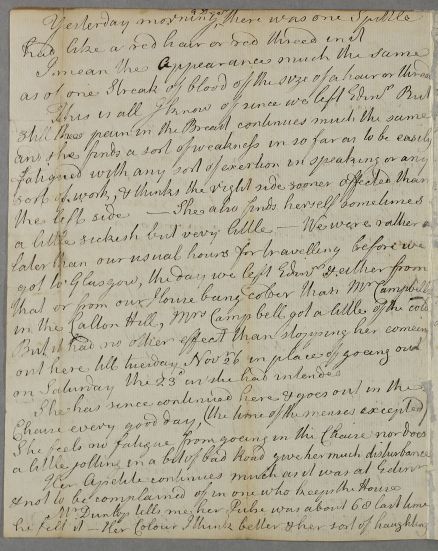 Yesterday morning, there was one Spittle
had like a red hair or red thread in it
I mean the Appearance much the same
as of one Streak of blood of the size of a hair or thread
This is all I know of since we left Edinr But
Still the pain in the Breast continues much the same
and she finds a sort of weakness in so far as to be easily
fatigued with any sort of exertion in speaking or any
sort of work, & thinks the right side sooner affected than
the left side — She also finds herself sometimes
a little sickish but very little — We were rather a
later than our usual hours for travelling before we
got to Glasgow, the day we left Edinr & either from
that or from our House being colder than Mr Campbells
in the Calton Hill, Mrs Campbell got a little of the cold
But it had no other effect than stopping her comeing
out here till tuesday Novr 26 in place of going out
on Saturday the 23 as she had intended
She has since continued here & goes out in the
Chaise every good day, (the time of the menses excepted)
She feels no fatigue from going in the Chaise nor does
a little jolting in a bit of bad Road give her much disturbance
Her Apetite continues much as it was at Edinr
& not to be complained of in one who keeps the House
Mr Dunlop tells me her Pulse was about 68 last time
he felt it — Her Colour I think better & her sort of